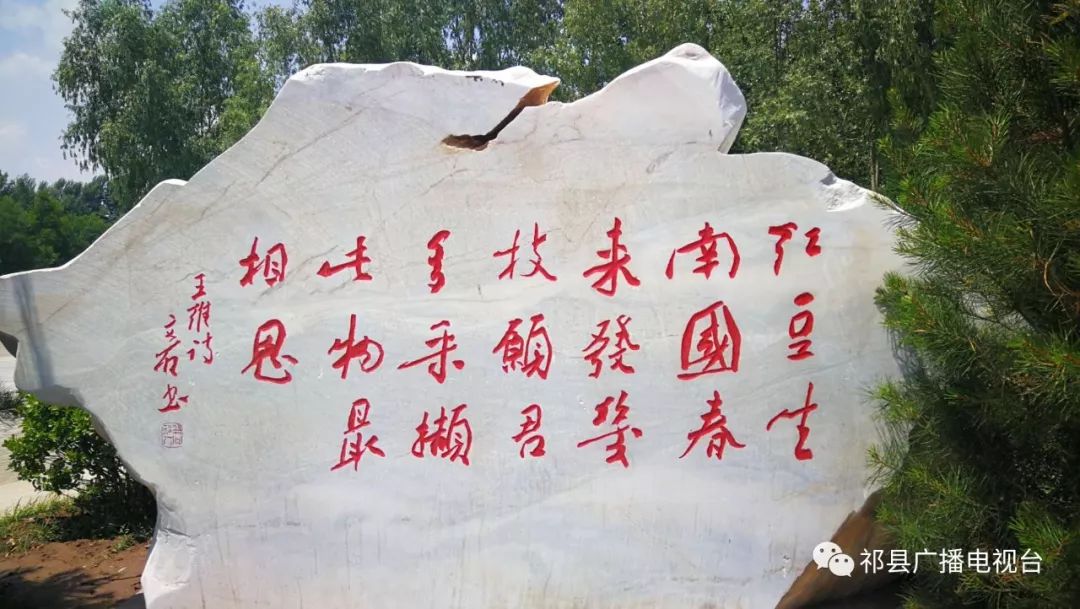 红豆生
南國春
来發幾
枝願君
多采擷
此物最
相思
王維诗
书
祁县广播电视台